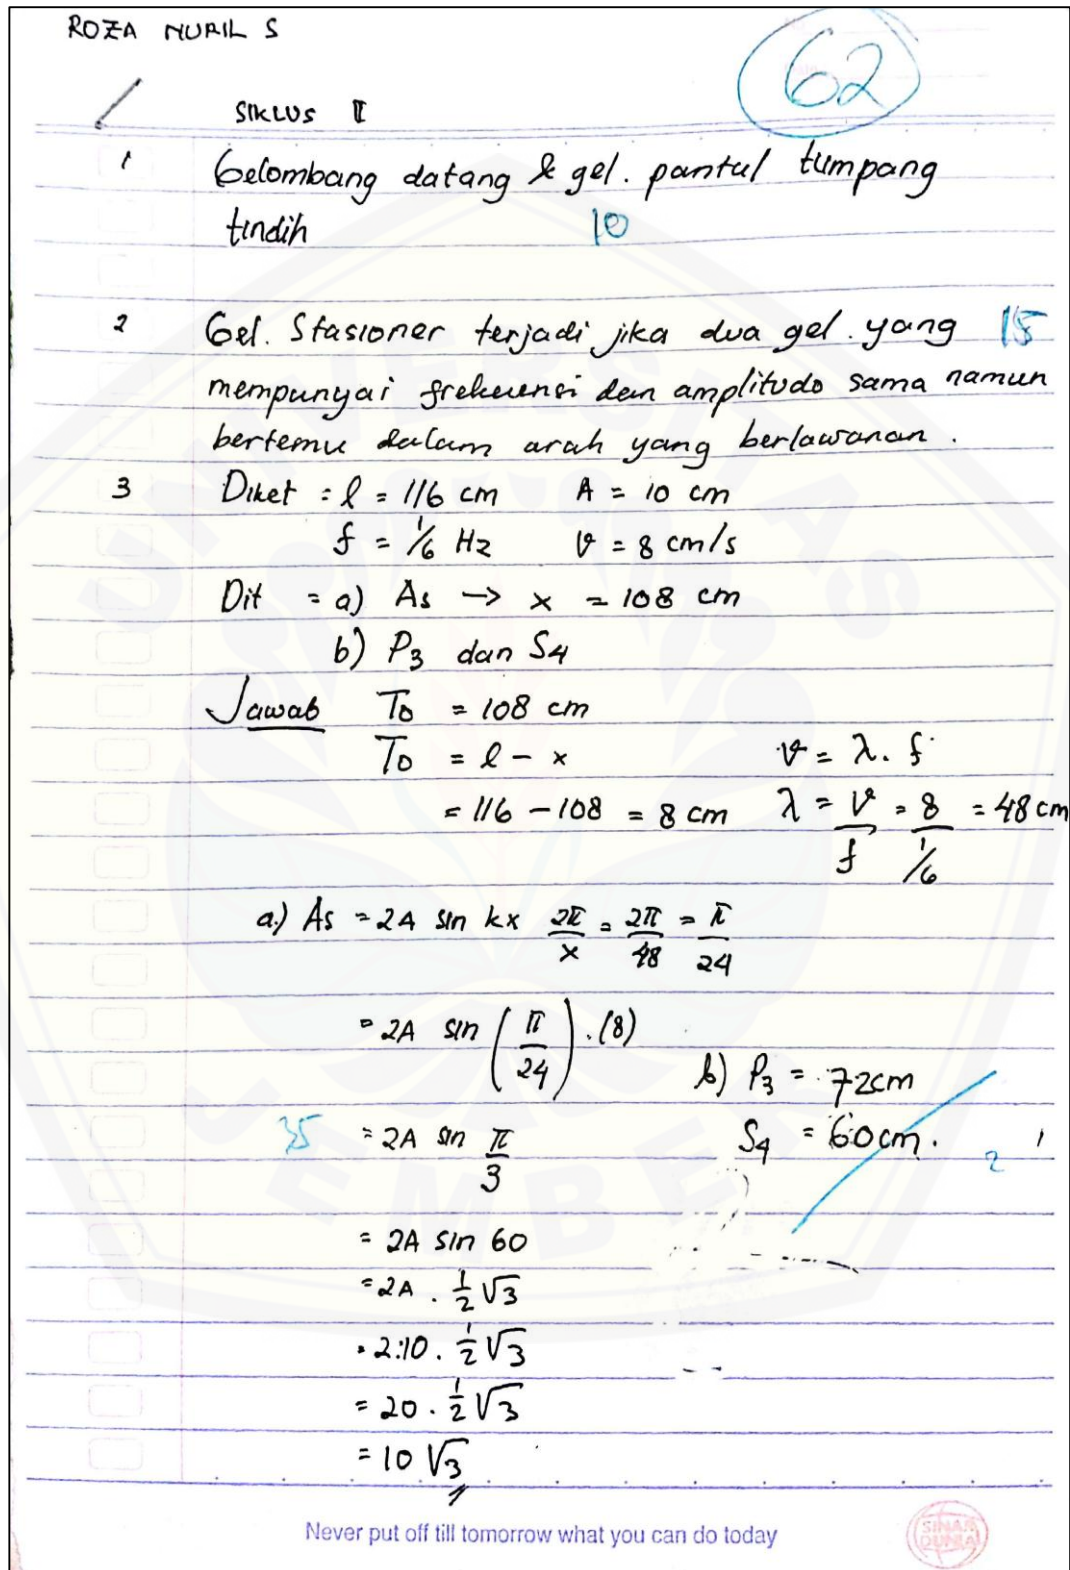 ROZA NURIL S
62
SIKLUS II
1 Gelombang datang & gel. pantul tumpang
tindih 10
2 Gel. Stasioner terjadi jika dua gel. yang 15
mempunyai frekuensi dan amplitudo sama namun
bertemu dalam arah yang berlawanan.
3 Diket : l = 116 cm A = 10 cm
f = 1/6 Hz v = 8 cm/s
Dit = a) As → x = 108 cm
b) P3 dan S4
Jawab To = 108 cm
To = l - x v = λ. f
= 116 - 108 = 8 cm λ = v/f = 8/(1/6) = 48 cm
a.) As = 2A sin kx 2π/x = 2π/48 = π/24
= 2A sin (π/24) . (8)
b) P3 = 72cm
35 = 2A sin π/3 S4 = 60cm. 2
= 2A sin 60
= 2A . 1/2 √3
= 2.10 . 1/2 √3
= 20 . 1/2 √3
= 10 √3
Never put off till tomorrow what you can do today
SINAR DUNIA
UNIVERSITAS JEMBER